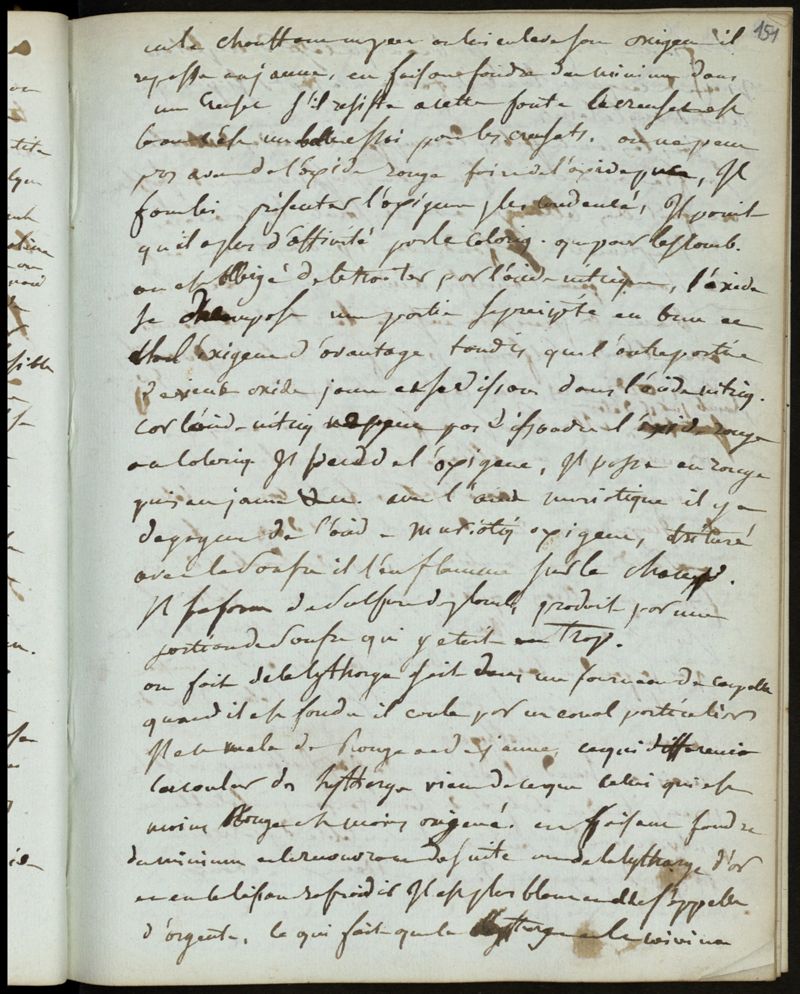 151
en le chauffant un peu on lui enleve son oxigene il
repasse au jaune, en faisant fondre du minium dans
un creuset s'il resiste a cette fonte le creuset est
bon c'est un bon essai pour les creusets. on ne peut
pas avec de l'oxide rouge faire de l'oxide puce, Il
faut lui présenter l'oxigene plus condensé, Il paroit
qu'il a plus d'affinité pour le caloriq. que pour le plomb.
on est obligé de le traiter par l'acide nitrique, l'oxide
se décompose une portion se precipite en brun en
l'oxigenant d'avantage tandis que l'autre portion
devient oxide jaune et se dissou dans l'acide nitriq.
car l'acide nitriq ne peut pas dissoudre l'oxide rouge
au caloriq Il perd de l'oxigene, Il passe au rouge
puis au jaune avec l'acide muriatique il y a
degagem de l'acid muriatiq oxigene, trituré
avec le soufre il l'enflamme sur le champ.
Il se forme de sulfure de plomb, produit par une
portion de soufre qui y etait en trop.
on fait de la lytharge fait dans un fourneau de coupelle
quand il est fondu il coule par un canal particulier
Il est melé de rouge et de jaune, ce qui differencie
la couleur des lytharge vien de ce que celui qui est
moins rouge est moins oxigené. en faisant fondre
du minium et le recouvrant de suite on a de la lytharge d'or
et en le laissant refroidir Il est plus blanc et elle s'appelle
d'argent, ce qui fait que la lytharge